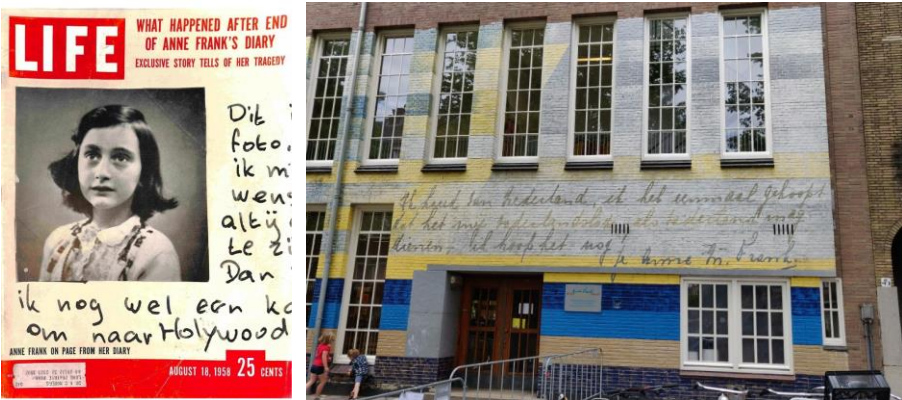 LIFE
WHAT HAPPENED AFTER END
OF ANNE FRANK'S DIARY
EXCLUSIVE STORY TELLS OF HER TRAGEDY
Dit i
foto.
ik m
wens
altij
te zi
Dan
ik nog wel een ko
om naar Holywood
ANNE FRANK ON PAGE FROM HER DIARY
AUGUST 18, 1958 25 CENTS
Ik houd van Nederland, ik heb eenmaal gehoopt
dat het mij vaderlandsloze als vaderland mag
dienen, ik hoop het nog!
je Anne M. Frank